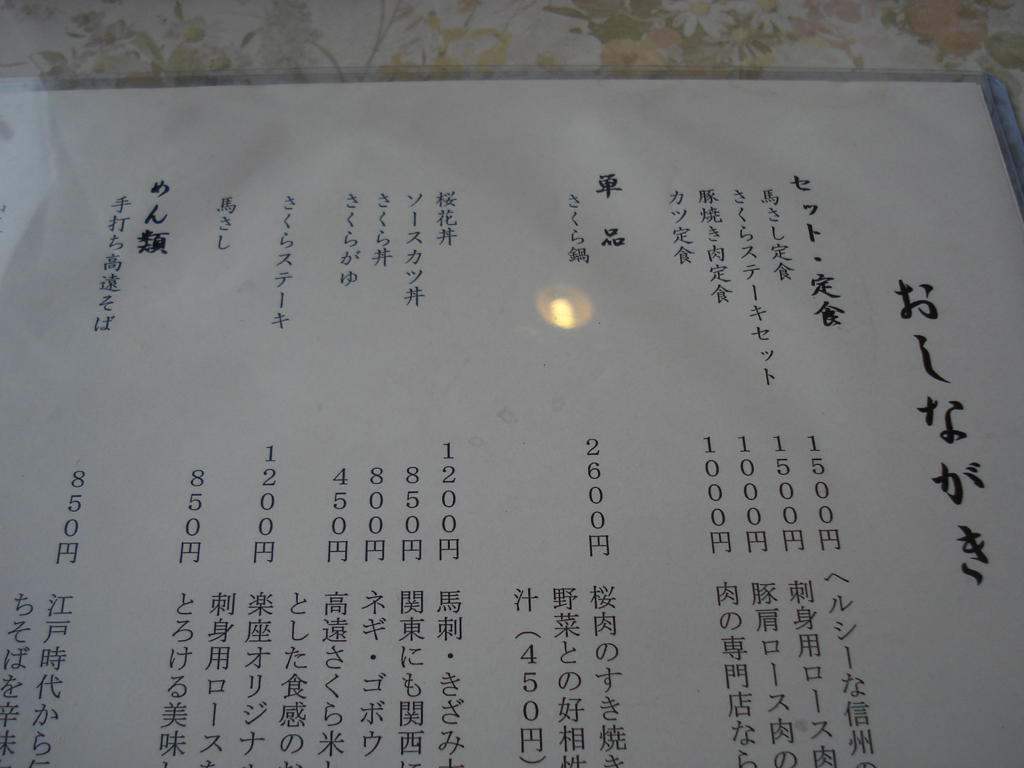 おしながき
セット・定食
馬さし定食 1500円 ヘルシーな信州の
さくらステーキセット 1500円 刺身用ロース肉
豚焼き肉定食 1000円 豚肩ロース肉の
カツ定食 1000円 肉の専門店なら
単品
さくら鍋 2600円 桜肉のすき焼き
野菜との好相性
汁(450円)
桜花丼 1200円 馬刺・きざみ
ソースカツ丼 850円 関東にも関西に
さくら丼 800円 ネギ・ゴボウ
さくらがゆ 450円 高遠さくら米
とした食感の
さくらステーキ 1200円 楽座オリジナル
刺身用ロース
馬さし 850円 とろける美味
めん類
手打ち高遠そば 850円 江戸時代から
ちそばを辛味